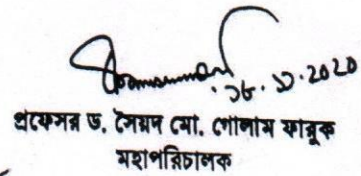 ১৮.১১.2020
প্রফেসর ড. সৈয়দ মো. গোলাম ফারুক
মহাপরিচালক